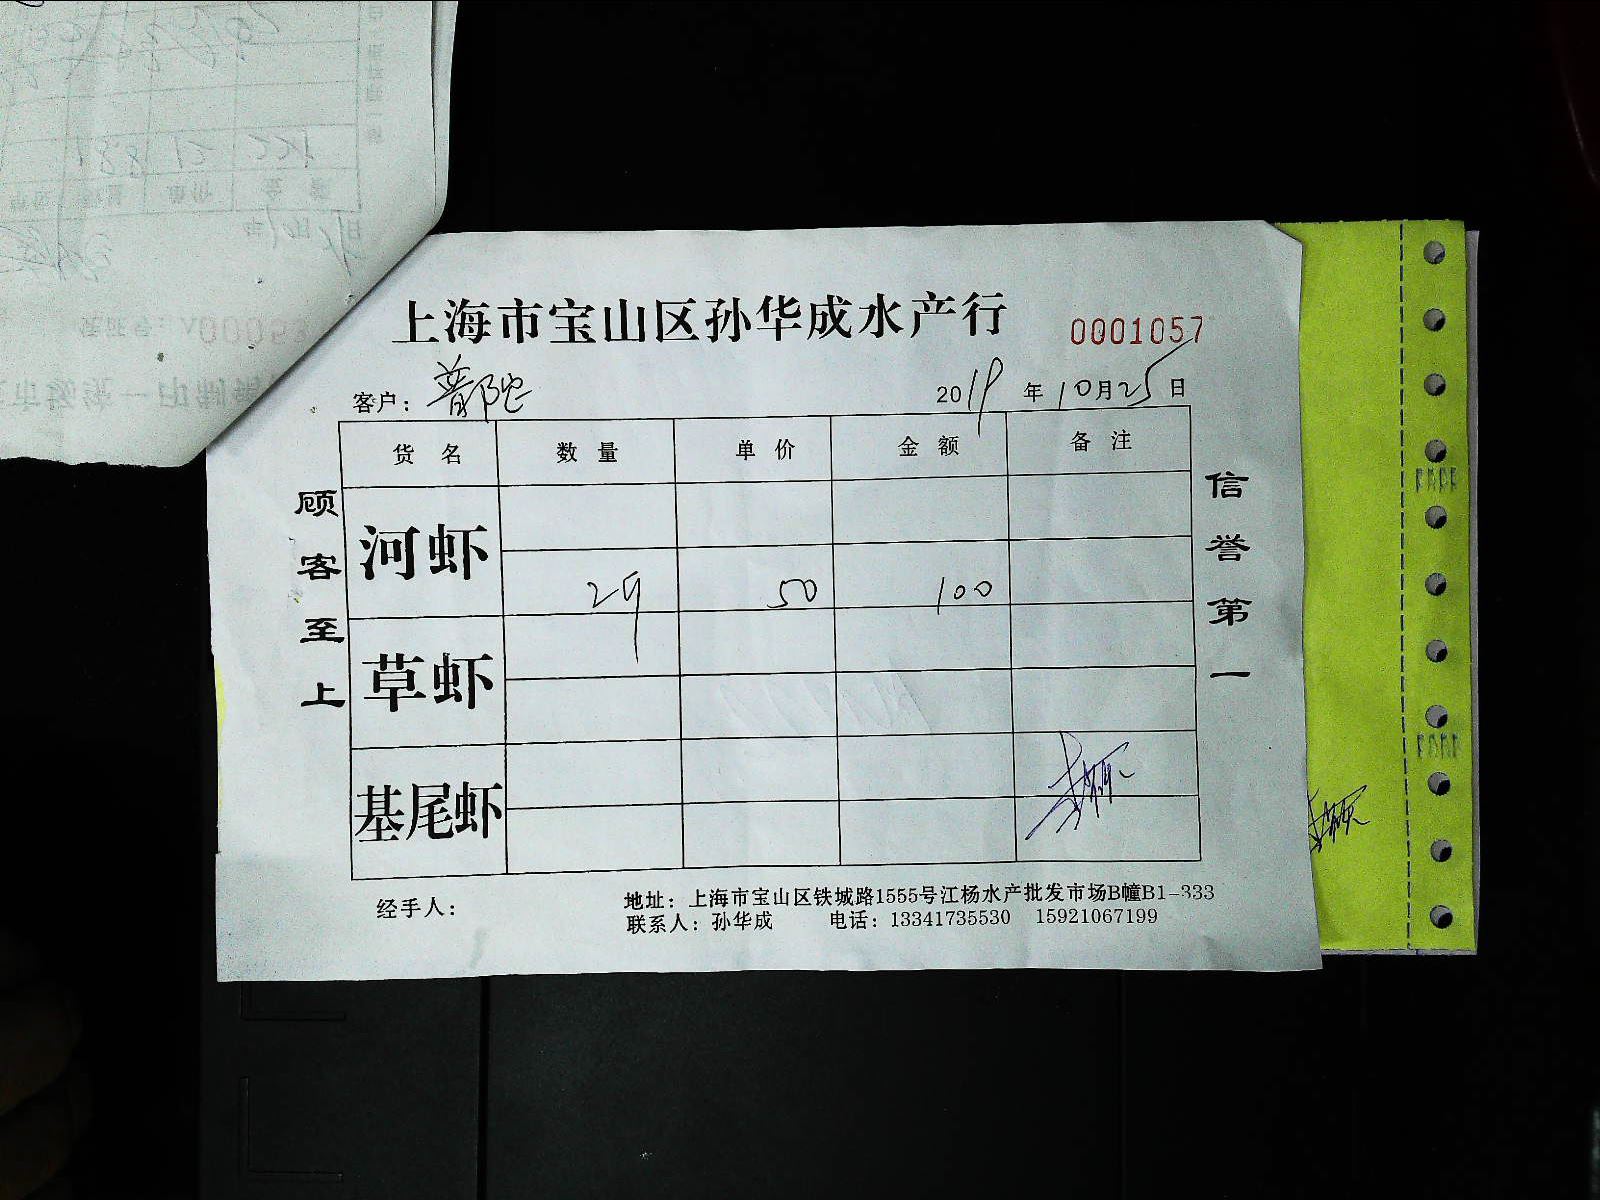 上海市宝山区孙华成水产行
0001057
客户：普陀 2019年10月25日
货名 数量 单价 金额 备注
河虾
2斤 50 100
草虾
基尾虾
顾客至上
信誉第一
经手人：
地址：上海市宝山区铁城路1555号江杨水产批发市场B幢B1-333
联系人：孙华成 电话：13341735530 15921067199